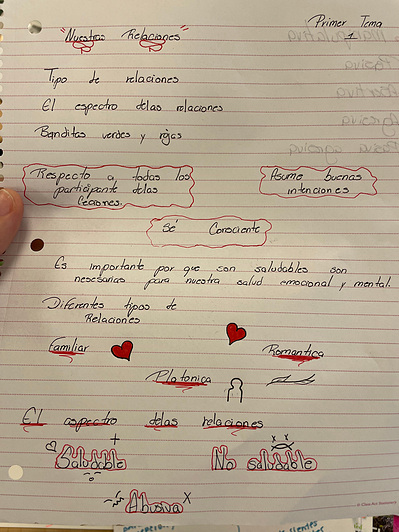 Primer Tema
1
"Nuestras Relaciones"
Tipo de relaciones
El espectro delas relaciones
Banditas verdes y rojas
Respecto a todas los
participante delas
Asume buenas
intenciones
Sé Consciente
Es importante por que son saludables son
nesesarias para nuestra salud emocional y mental.
Diferentes tipos de
Relaciones
Familiar
Romantica
Platonica
El aspectro delas relaciones
Saludable
No saludable
Abusiva